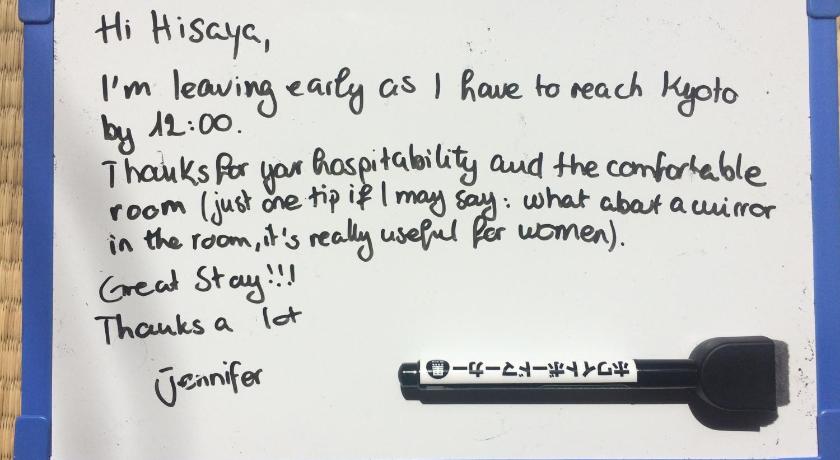 Hi Hisaya,
I'm leaving early as I have to reach Kyoto
by 12:00.
Thanks for your hospitability and the comfortable
room (just one tip if I may say: what about a mirror
in the room, it's really useful for women).
Great Stay!!!
Thanks a lot
Jennifer
ホワイトボードマーカー 黒